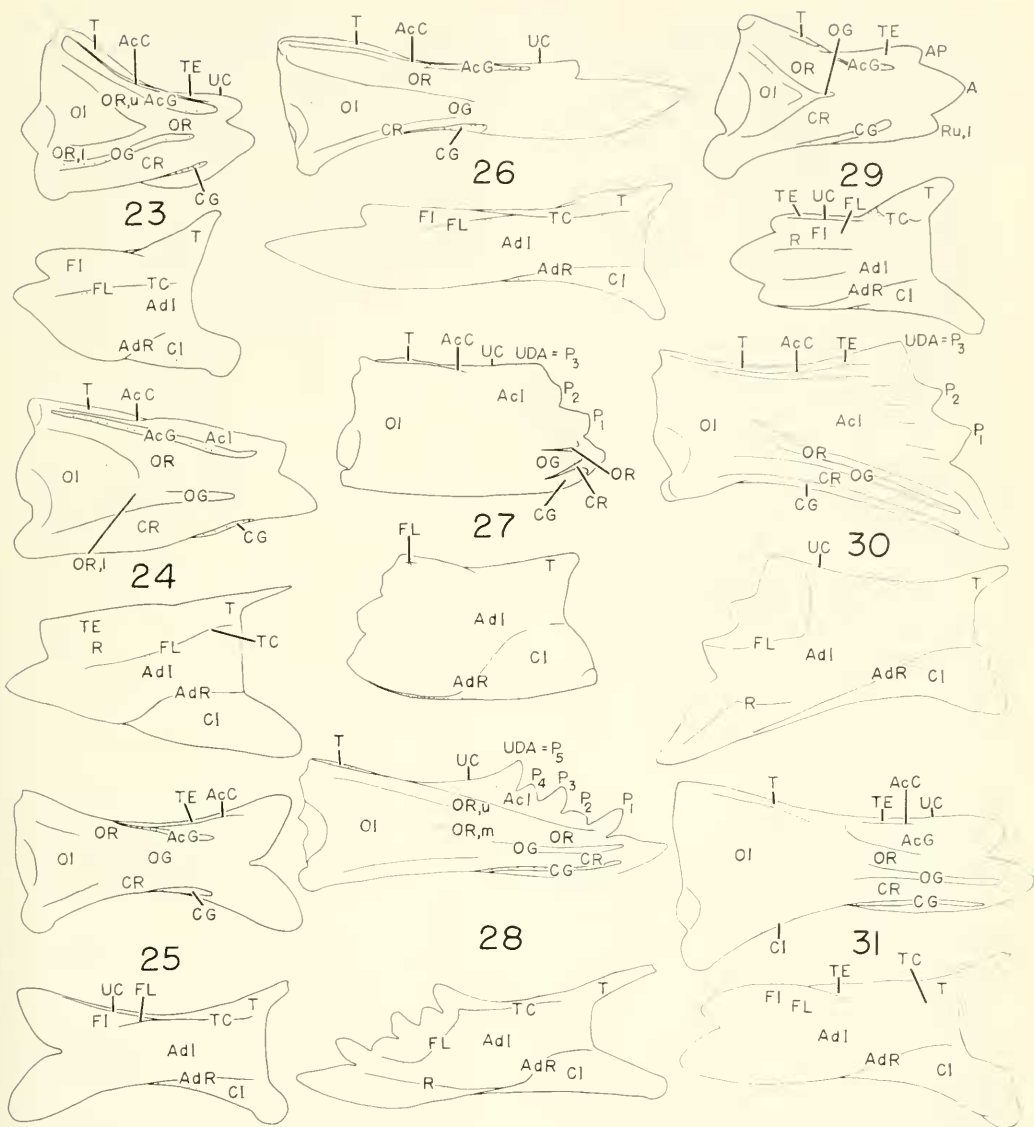 T AcC TE UC
OI OR,u AcG
OR
OR,l OG CR
CG
23
T
FI
FL TC
AdI
AdR CI
T AcC
AcG AcI
OI OR
OG
CR
CG
OR,l
24
TE T
R
FL TC
AdI
AdR
CI
TE AcC
OR AcG
OI OG
CR
CG
25
UC FL
FI TC T
AdI
AdR CI
T AcC UC
AcG
OR
OI OG
CR
CG
26
FI FL TC T
AdI
AdR CI
T AcC UC UDA = P3
AcI P2
OI P1
OG OR
CR
CG
27
FL
T
AdI
CI
AdR
T UC UDA = P5
P4 P3 P2 P1
OR,u AcI
OI OR,m OR
OG CR
CG
28
TC T
FL AdI
AdR CI
R
T OG TE
AP
OR AcG
OI A
CR
Ru,l
CG
29
TE UC FL
TC T
R FI
AdI
AdR CI
T AcC TE UDA = P3
P2
AcI
OI P1
OR
CR OG
CG
30
UC
T
FL AdI
AdR CI
R
T AcC
TE UC
AcG
OI OR
OG
CR
CG
CI
31
TE TC
FI FL T
AdI
AdR CI